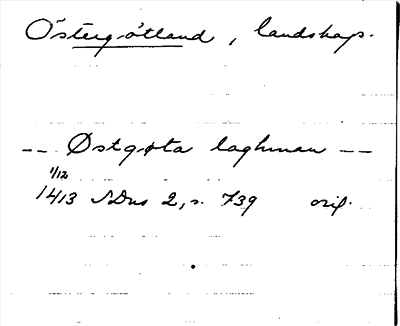 Östergötland, landskap.
-- Østgøta laghman --
1/12
1413 SDns 2, s. 739 orig.